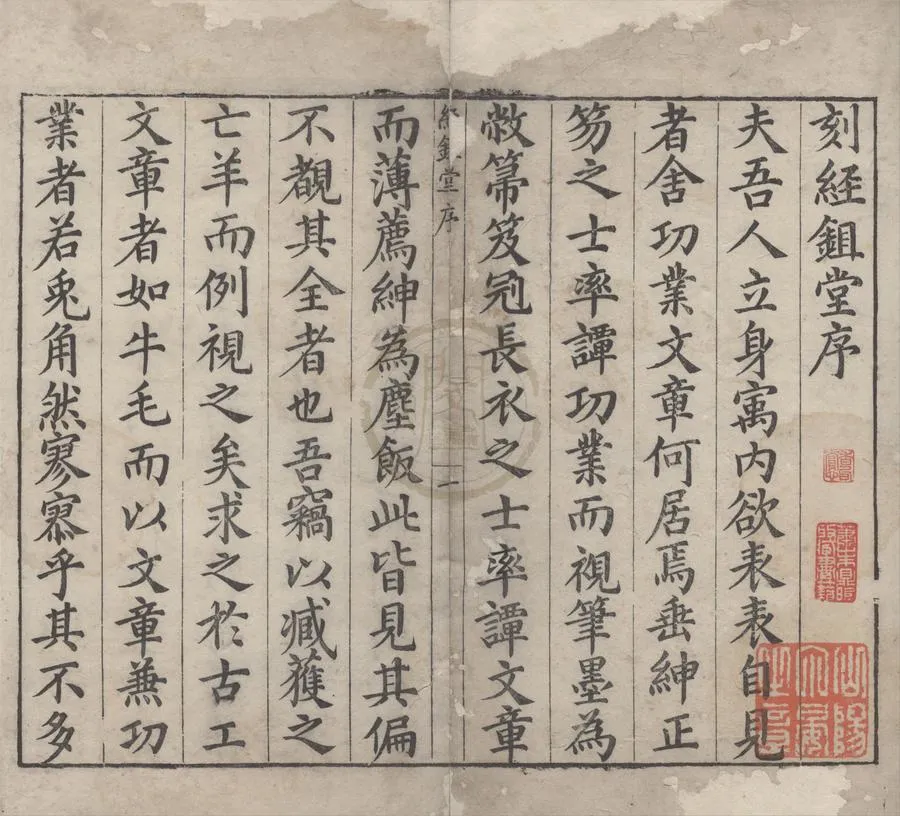 刻經鉏堂序
夫吾人立身寓内欲表表自見
者舍功業文章何居焉垂紳正
笏之士率譚功業而視筆墨為
敝帚笈冠長衣之士率譚文章
經鉏堂序
一
而薄薦紳為塵飯此皆見其偏
不覩其全者也吾竊以臧蒦之
亡羊而例視之矣求之於古工
文章者如牛毛而以文章兼功
業者若兎角然寥寥乎其不多